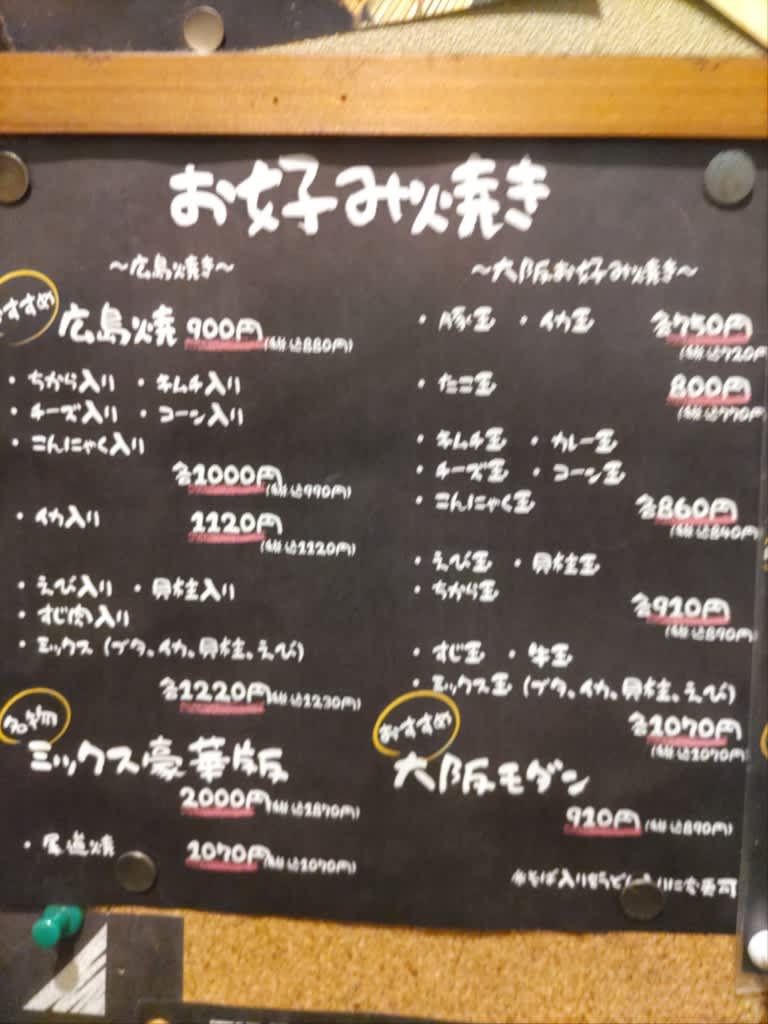 お好み焼き
～広島焼き～
おすすめ
広島焼 900円(税込880円)
・ちから入り ・キムチ入り
・チーズ入り ・コーン入り
・こんにゃく入り
各1000円(税込990円)
・イカ入り 1120円
(税込1120円)
・えび入り ・貝柱入り
・すじ肉入り
・ミックス(ブタ、イカ、貝柱、えび)
各1220円(税込1230円)
名物
ミックス豪華版
2000円(税込1870円)
・尾道焼 1070円(税込1070円)
～大阪お好み焼き～
・豚玉 ・イカ玉 各750円
(税込720円
・たこ玉 800円
(税込770円
・キムチ玉 ・カレー玉
・チーズ玉 ・コーン玉
・こんにゃく玉 各860円
(税込840円
・えび玉 ・貝柱玉
・ちから玉
各910円
(税込890円
・すじ玉 ・牛玉
・ミックス玉(ブタ、イカ、貝柱、えび)
各1070円
(税込1070円)
おすすめ
大阪モダン
910円(税込890円)
※そば入りをうどん入りに変更可